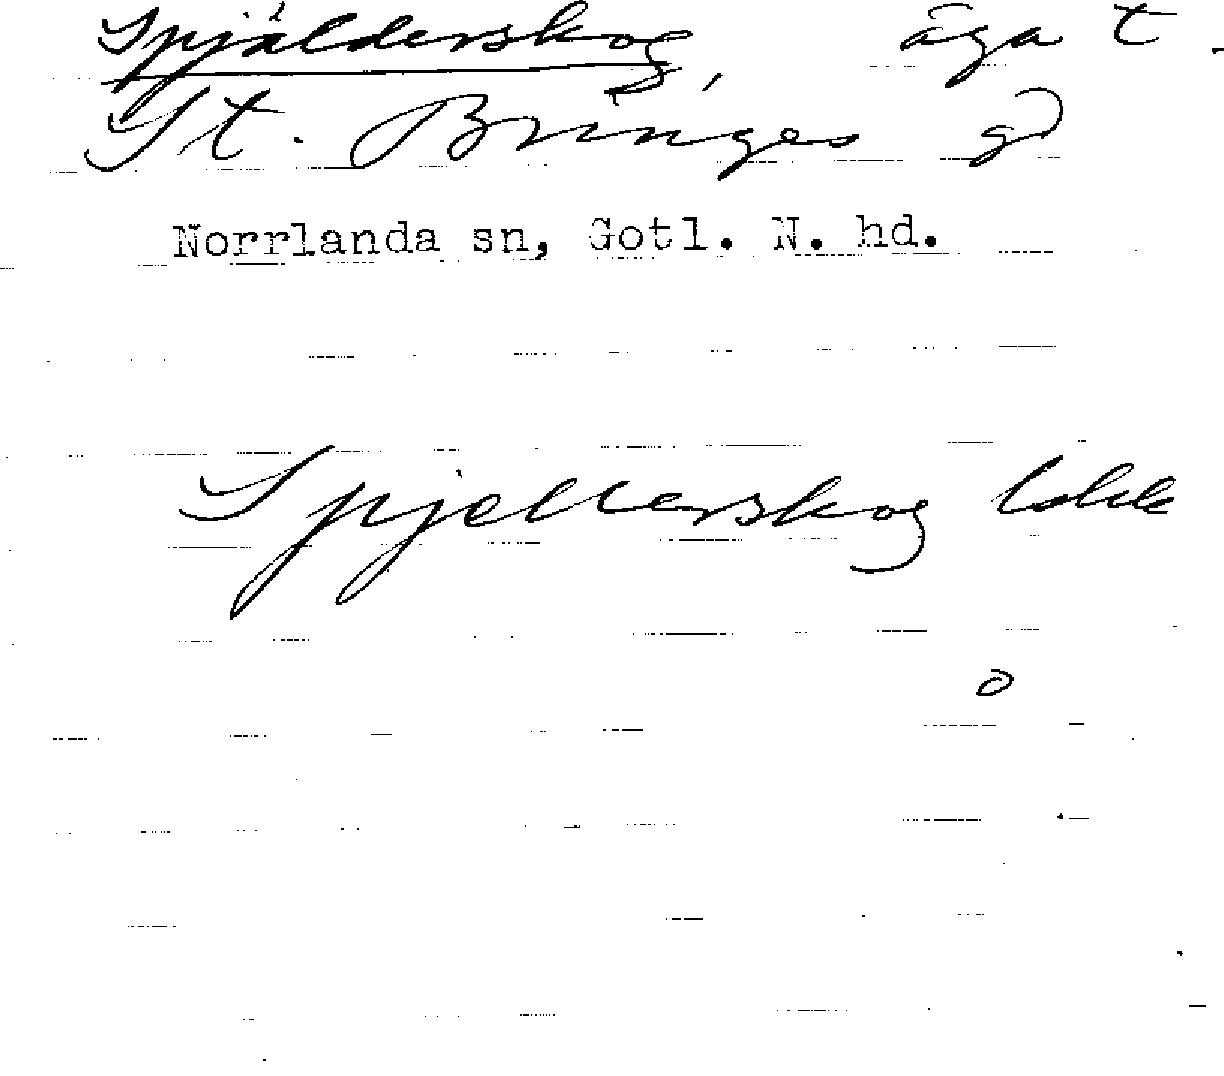 Spjälderskog, äga t.
St. Bringes gd
Norrlanda sn, Gotl. N. hd.
Spjellerskog